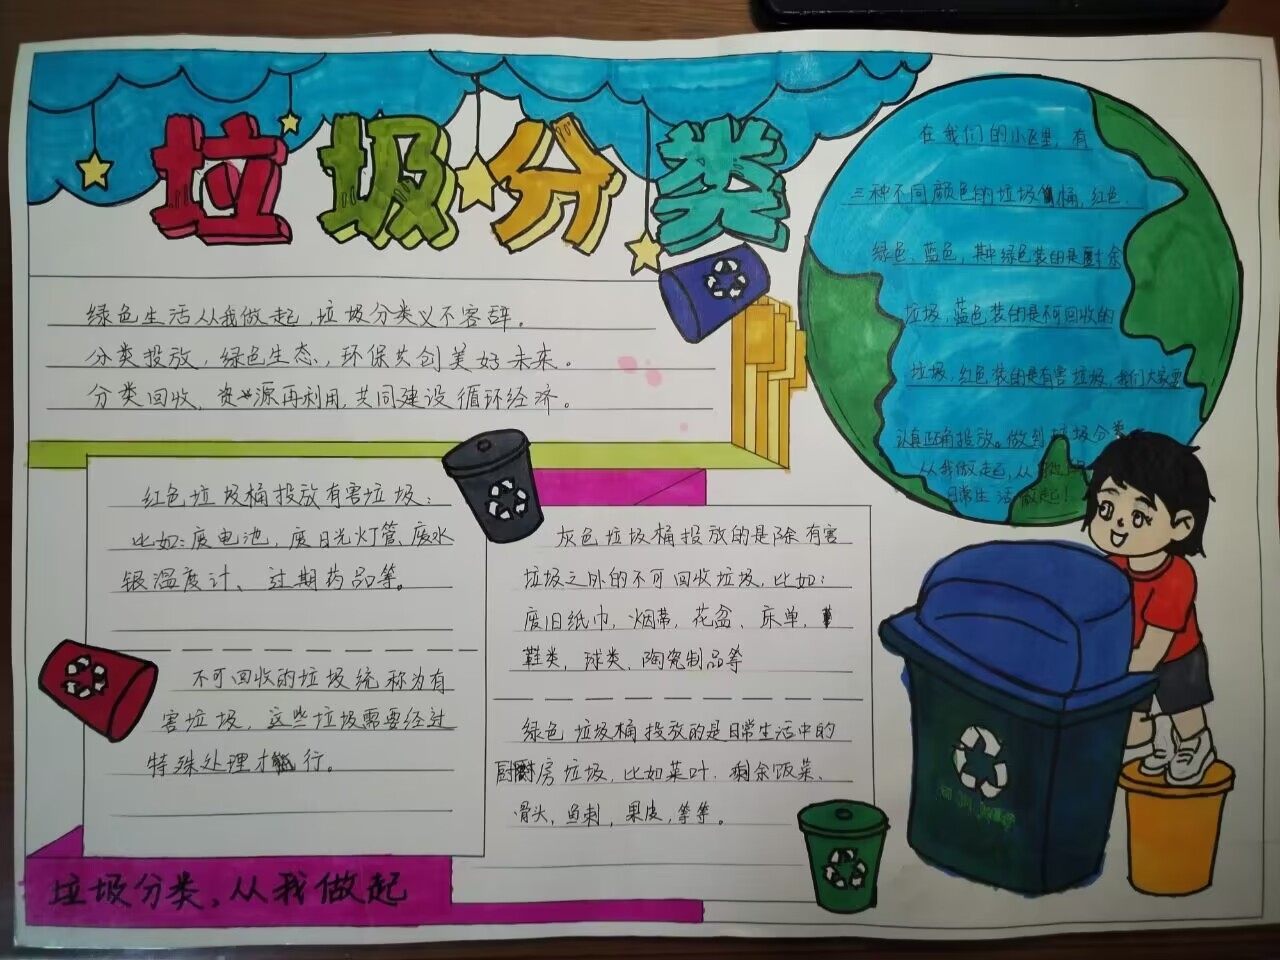 垃圾分类
绿色生活从我做起,垃圾分类义不容辞。
分类投放,绿色生态,环保共创美好未来。
分类回收,资源再利用,共同建设循环经济。
红色垃圾桶投放有害垃圾:
比如:废电池,废日光灯管、废水
银温度计、过期药品等。
不可回收的垃圾统称为有
害垃圾,这些垃圾需要经过
特殊处理才能行。
灰色垃圾桶投放的是除有害
垃圾之外的不可回收垃圾,比如:
废旧纸巾,烟蒂,花盆、床单,
鞋类,球类、陶瓷制品等
绿色垃圾桶投放的是日常生活中的
厨房垃圾,比如菜叶.剩余饭菜、
骨头,鱼刺,果皮,等等。
垃圾分类,从我做起
在我们的小区里,有
三种不同颜色的垃圾桶,红色.
绿色、蓝色,其中绿色装的是厨余
垃圾,蓝色装的是不可回收的
垃圾,红色装的是有害垃圾,我们大家要
认真正确投放。做到垃圾分类
从我做起,从
日常生活做起!